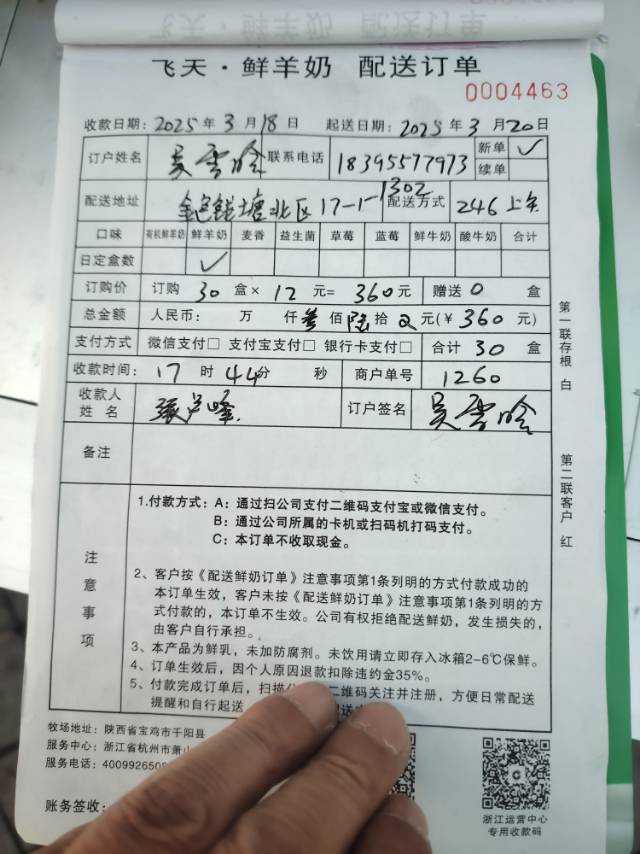 飞天·鲜羊奶 配送订单
0004463
收款日期：2025年3月18日 起送日期：2025年3月20日
订户姓名 吴雪晗 联系电话 18395577973 新单 ✓
续单
配送地址 钱塘北区17-1-1302 配送方式 246上午
口味 有机鲜羊奶 鲜羊奶 麦香 益生菌 草莓 蓝莓 鲜牛奶 酸牛奶 合计
日定盒数 ✓
订购价 订购 30 盒× 12 元= 360元 赠送 0 盒
总金额 人民币： 万 仟叁佰陆拾 元(￥360元)
支付方式 微信支付□ 支付宝支付□ 银行卡支付□ 合计 30 盒
收款时间： 17 时 44分 秒 商户单号 1260
收款人姓名 张 峰 订户签名 吴雪晗
备注
注意事项
1.付款方式：A：通过扫公司支付二维码支付宝或微信支付。
B：通过公司所属的卡机或扫码机打码支付。
C：本订单不收取现金。
2、客户按《配送鲜奶订单》注意事项第1条列明的方式付款成功的
本订单生效，客户未按《配送鲜奶订单》注意事项第1条列明的方
式付款的，本订单不生效。公司有权拒绝配送鲜奶，发生损失的，
由客户自行承担。
3、本产品为鲜乳，未加防腐剂。未饮用请立即存入冰箱2-6℃保鲜。
4、订单生效后，因个人原因退款扣除违约金35%。
5、付款完成订单后，扫描 二维码关注并注册，方便日常配送
提醒和自行起送
牧场地址：陕西省宝鸡市千阳县
服务中心：浙江省杭州市萧山
服务电话：4009926508
账务签收：
浙江运营中心
专用收款码
第一联存根 白
第二联客户 红